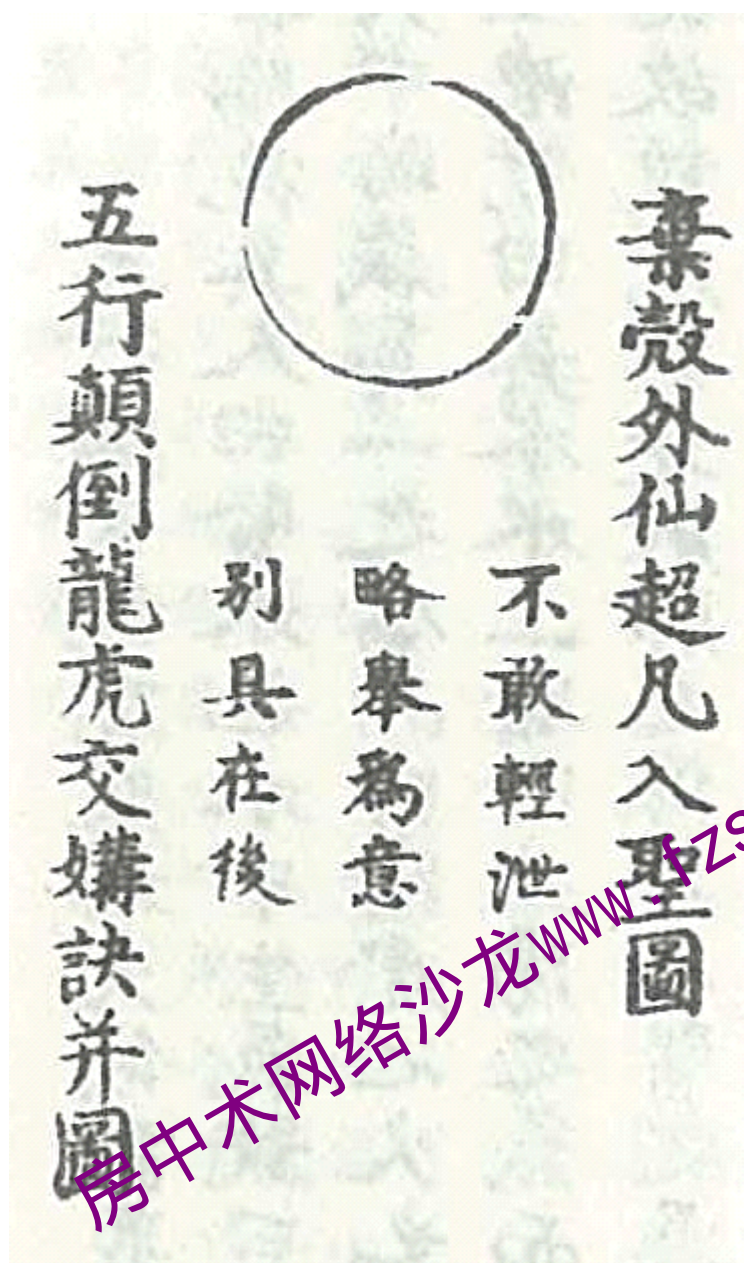 棄殼外仙超凡入聖圖
不敢輕泄
略舉爲意
别具在後
五行顛倒龍虎交媾訣并圖
房中术网络沙龙www.fzs